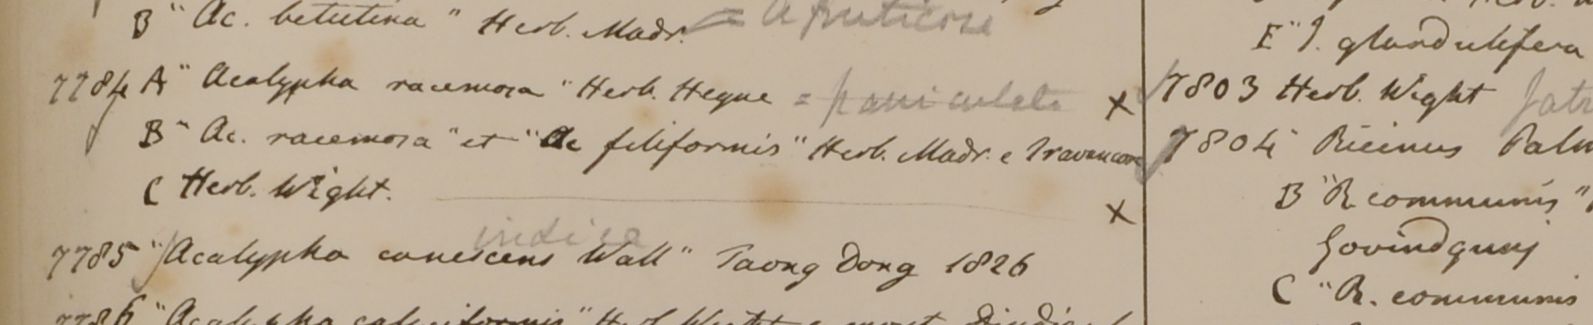 B "Ac. betulina" Herb. Madr. = A fruticosa
7784 A "Acalypha racemosa" Herb. Heyne = paniculata x
B "Ac. racemosa" et "Ac filiformis" Herb. Madr. e Travancore
C Herb. Wight. x
indica
7785 "Acalypha canescens Wall" Taong Dong 1826
7786 "Acalypha
E "J. glandulifera
7803 Herb. Wight Jatr
7804 Ricinus Palm
B "R. communis"
Govindgunj
C "R. communis